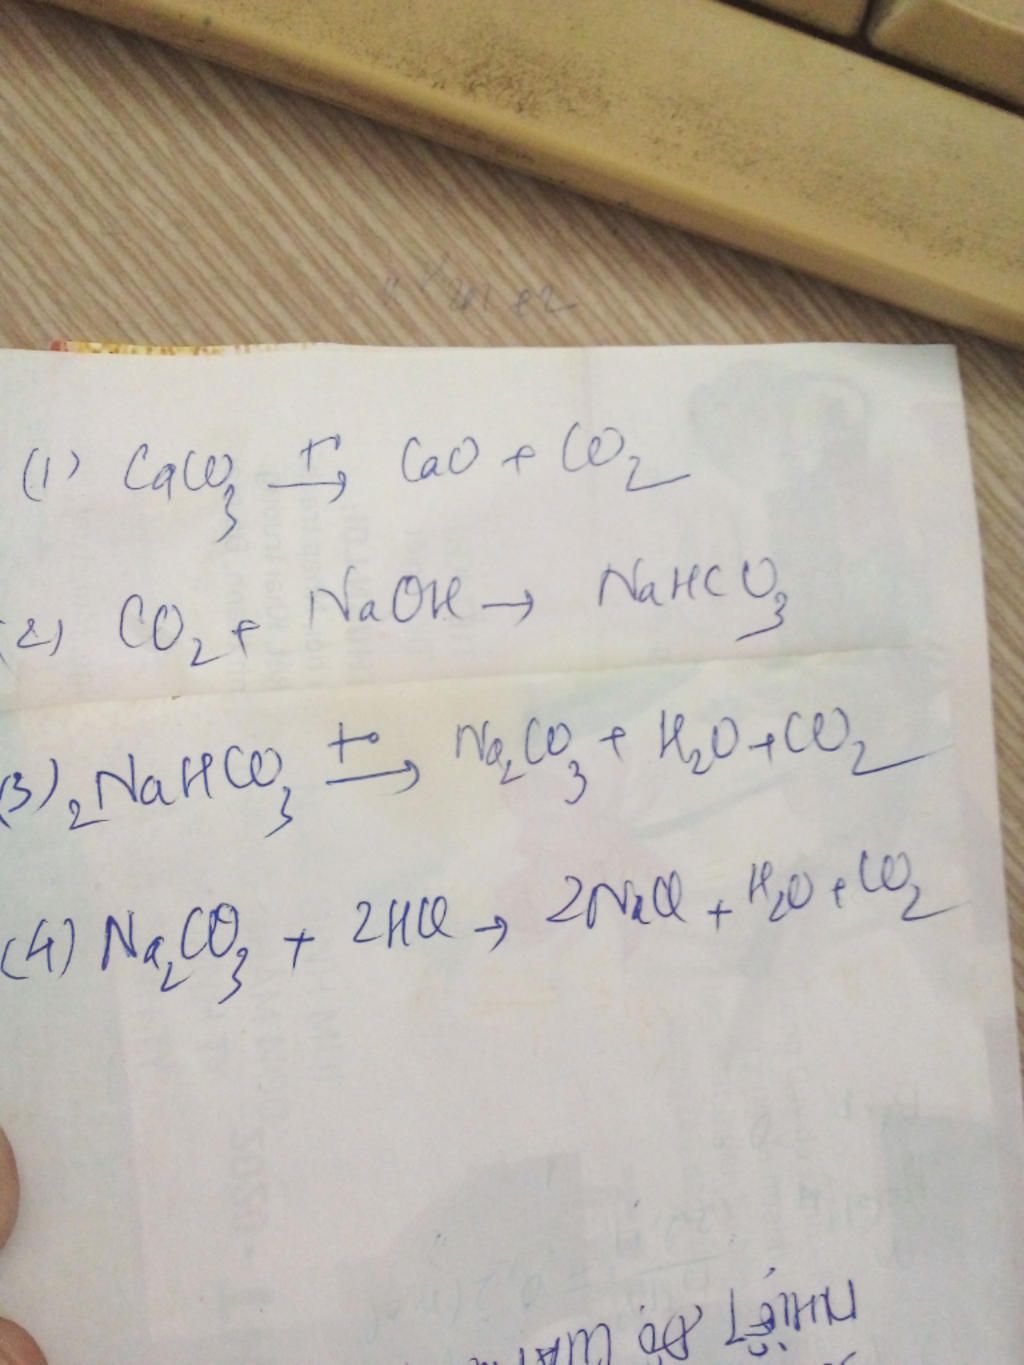 (1) CaCO₃ $\xrightarrow{t°}$ CaO + CO₂
(2) CO₂ + NaOH → NaHCO₃
(3) 2NaHCO₃ $\xrightarrow{t°}$ Na₂CO₃ + H₂O + CO₂
(4) Na₂CO₃ + 2HCl → 2NaCl + H₂O + CO₂
NHIỆT ĐỘ